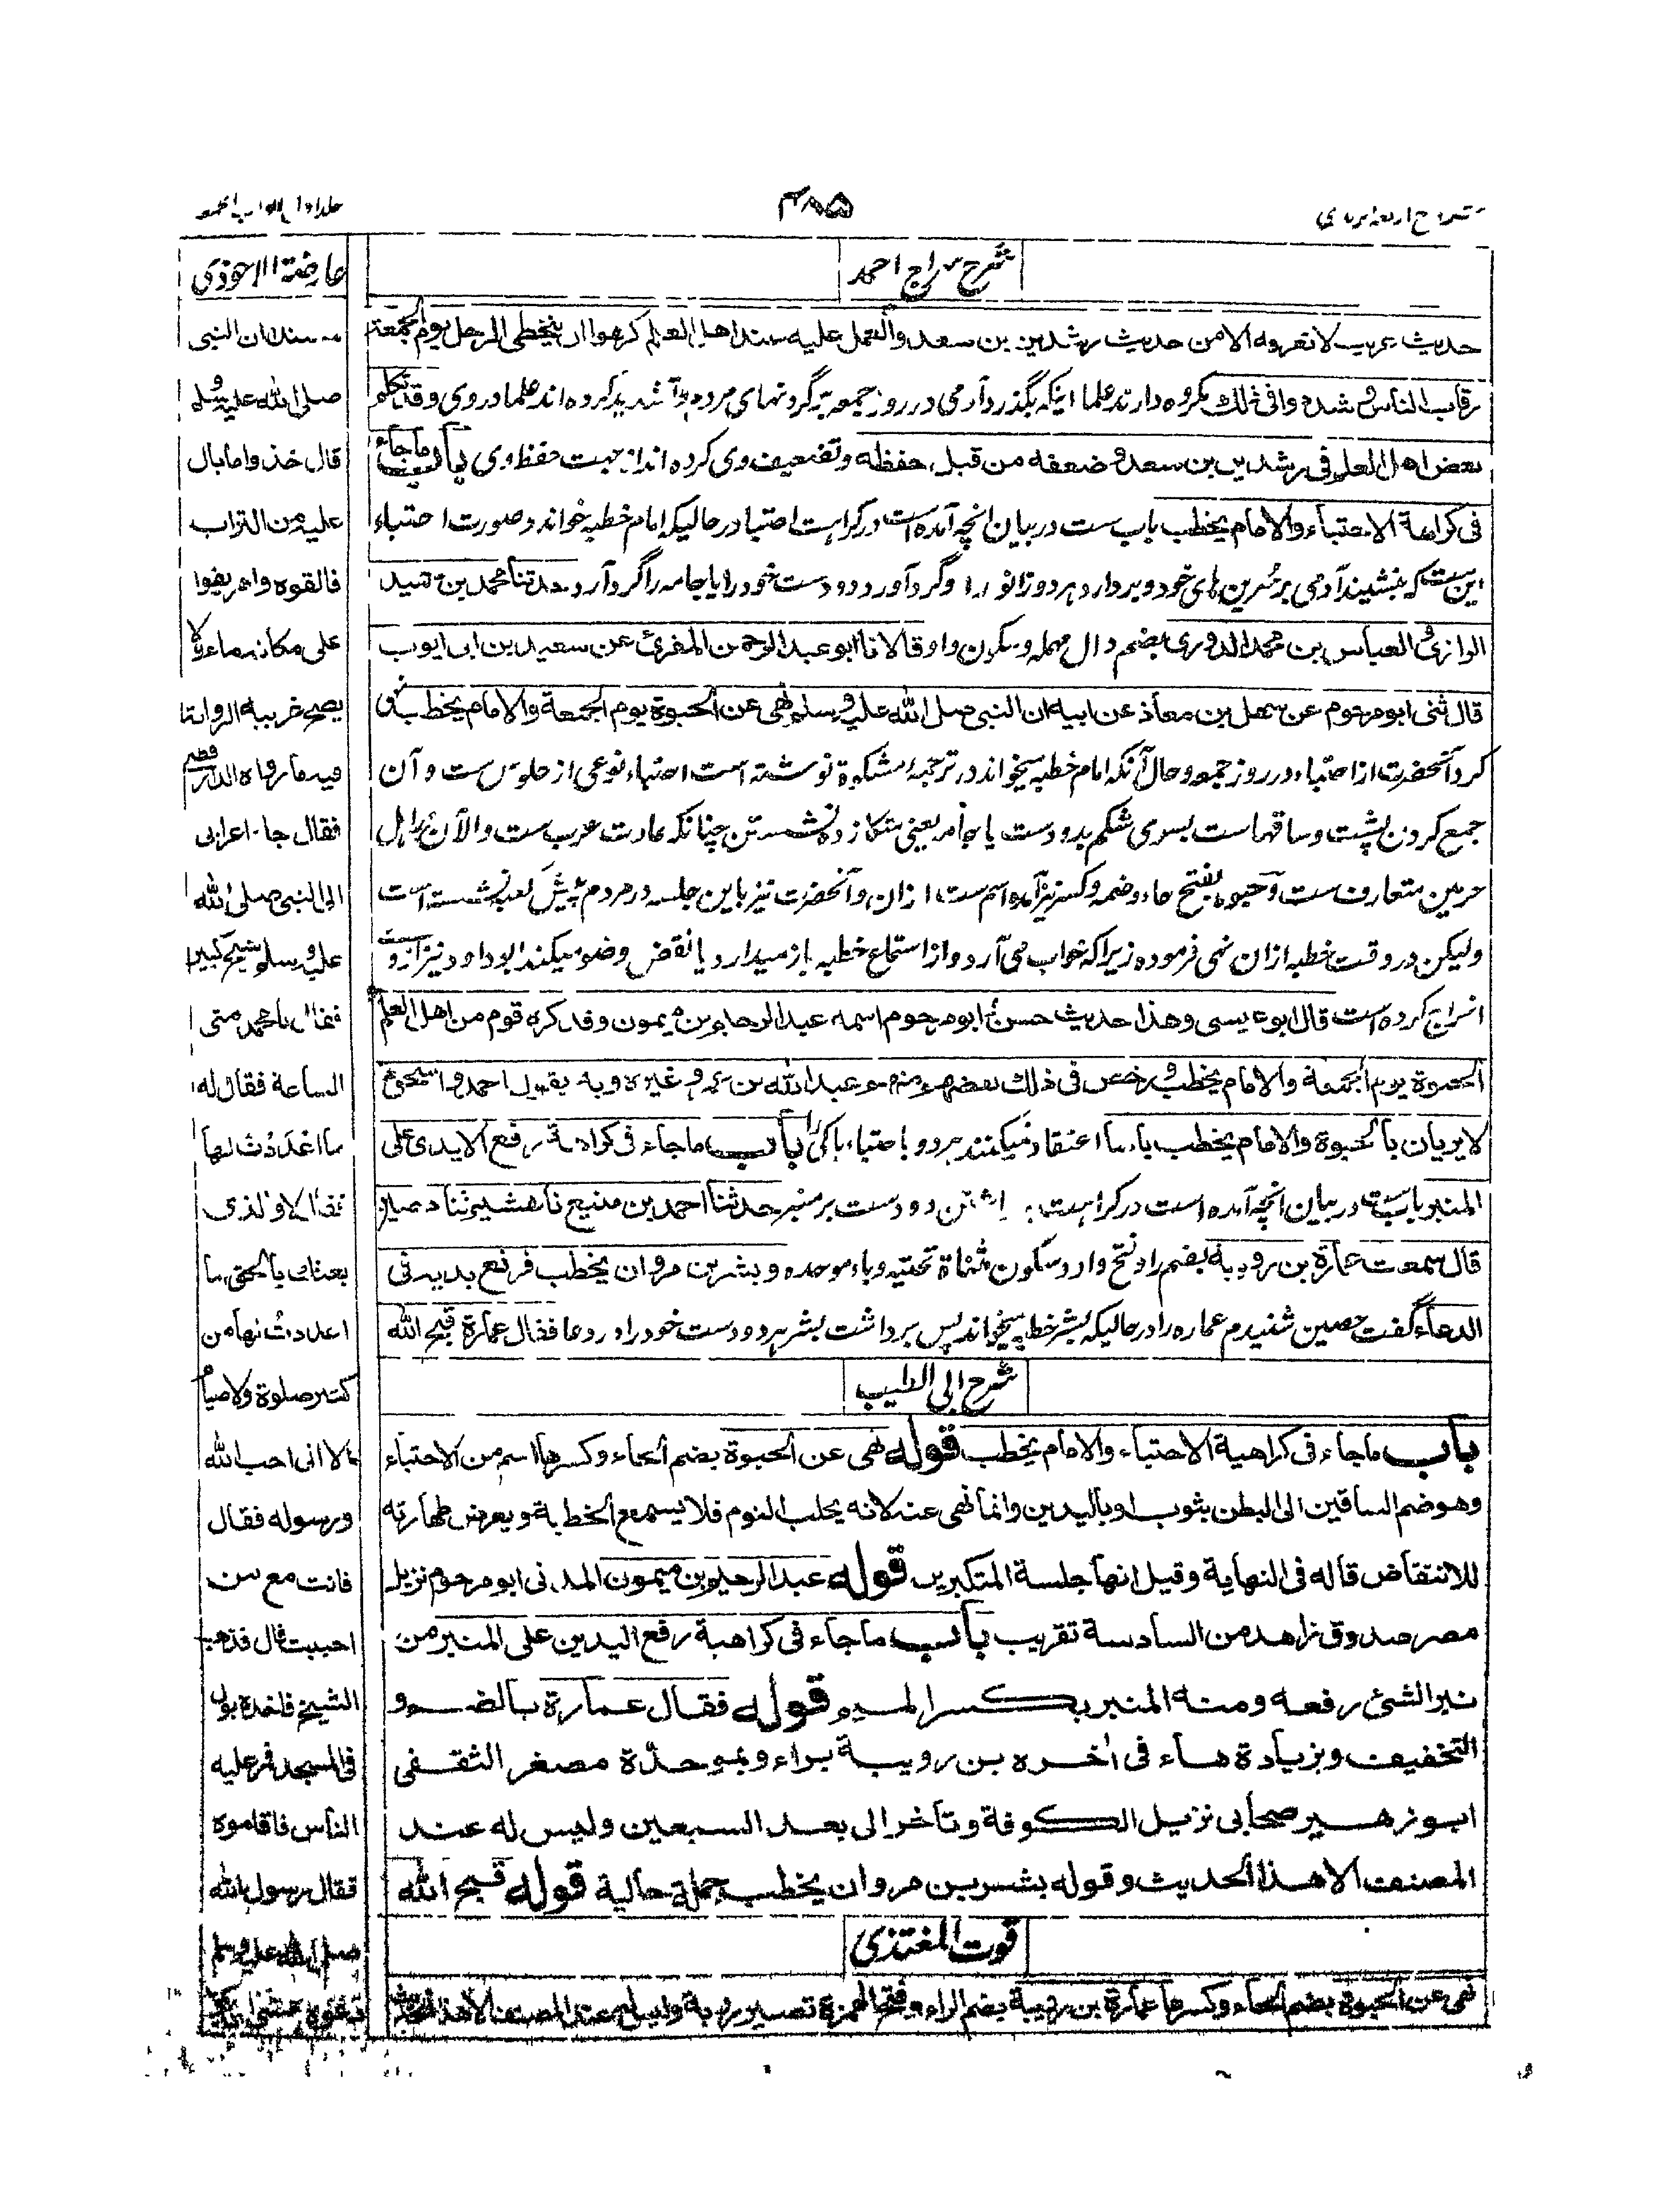 شروح اربعه ترمذی
۴۸۵
جلد اول ابواب الجمعه
شرح سراج احمد
حدیث غریب لا نعرفه الا من حدیث رشدین بن سعد والعمل علیه عند اهل العلم کرهوا ان یتخطی الرجل یوم الجمعة
رقاب الناس و شددوا فی ذلك مکروه دارند علما اینکه بگذرد آدمی در روز جمعه بر گردنهای مردم و تشدید کرده اند علما در وی وقد تکلم
بعض اهل العلم فی رشدین بن سعد و ضعفه من قبل حفظه و تضعیف وی کرده اند از جهت حفظ وی باب ماجاء
فی کراهة الاحتباء والامام یخطب باب ست در بیان انچه آمده است در کراهت احتبا در حالیکه امام خطبه خواند و صورت احتباء
این ست که بنشیند آدمی بر سرین های خود و بردارد هر دو زانو را و گرد آورد دو دست خود را یا جامه را گرد آرد حدثنا محمد بن حمید
الرازی و العباس بن محمد الدوری بضم دال مهمله و سکون واو قالا نا ابو عبد الرحمن المقرئ عن سعید بن ابی ایوب
قال ثنی ابو مرحوم عن سهل بن معاذ عن ابیه ان النبی صلی الله علیه وسلم نهی عن الحبوة یوم الجمعة والامام یخطب نهی
کرد آنحضرت از احتباء در روز جمعه و حال آنکه امام خطبه میخواند در ترجمه مشکوة نوشته است احتباء نوعی از جلوس ست و آن
جمع کردن پشت و ساقهاست بسوی شکم بدو دست یا بجامه یعنی متکا زده نشستن چنانکه عادت عرب ست والآن اهل
حرمین متعارف ست و حبوه بفتح حاء و ضمه و کسر نیز آمده اسم ست ازان و آنحضرت نیز باین جلسه در مردم پیش کعبه نشسته است
ولیکن در وقت خطبه ازان نهی فرموده زیرا که خواب می آرد و از استماع خطبه باز میدارد یا نقض وضو میکند ابو داود نیز این روایت
اخراج کرده است قال ابو عیسی و هذا حدیث حسن و ابو مرحوم اسمه عبد الرحیم بن میمون وقد کره قوم من اهل العلم
الحبوة یوم الجمعة والامام یخطب و رخص فی ذلك بعضهم منهم عبد الله بن عمر و غیره و به یقول احمد و اسحق
لا یریان بالحبوة والامام یخطب باسا اعتقاد نمیکنند هر دو باحتباء باکی را باب ماجاء فی کراهة رفع الایدی علی
المنبر باب ست در بیان انچه آمده است در کراهت برداشتن دو دست بر منبر حدثنا احمد بن منیع نا هشیم ثنا حصین
قال سمعت عمارة بن رویبة بضم را و فتح واو و سکون مثناة تحتیه و باء موحده و بشر بن مروان یخطب فرفع یدیه فی
الدعاء گفت حصین شنیدم عماره را در حالیکه بشر خطبه میخواند پس برداشت بشر هر دو دست خود را در دعا فقال عمارة قبح الله
شرح ابی الطیب
باب ماجاء فی کراهیة الاحتباء والامام یخطب قوله نهی عن الحبوة بضم الحاء و کسرها اسم من الاحتباء
وهو ضم الساقین الی البطن بثوب او بالیدین وانما نهی عنه لانه یجلب النوم فلا یسمع الخطبة و یعرض طهارته
للانتقاض قاله فی النهایة وقیل انها جلسة المتکبرین قوله عبد الرحیم بن میمون المدنی ابو مرحوم نزیل
مصر صدوق زاهد من السادسة تقریب باب ماجاء فی کراهیة رفع الیدین علی المنبر من
نبر الشئ رفعه ومنه المنبر بکسر المیم قوله فقال عمارة بالضم و
التخفیف و بزیادة هاء فی اخره بن رویبة براء و بموحدة مصغر الثقفی
ابو زهیر صحابی نزیل الکوفة و تاخر الی بعد السبعین ولیس له عند
المصنف الا هذا الحدیث و قوله بشر بن مروان یخطب جملة حالیة قوله قبح الله
قوت المغتذی
نهی عن الحبوة بضم الحاء و کسرها عمارة بن رویبة بضم الراء و فتح الهمزة تصغیر روبة ولیس له عند المصنف الا هذا الحدیث
عارضة الاحوذی
مسندا ان النبی
صلی الله علیه وسلم
قال خذوا ما بال
علیه من التراب
فالقوه واهریقوا
علی مکانه ماء ولا
یصح غریبه الروایة
فیه ما رواه الدارقطنی
فقال جاء اعرابی
الی النبی صلی الله
علیه وسلم شیخ کبیر
فقال یا محمد متی
الساعة فقال له
ما اعددت لها
فقال لا والذی
بعثك بالحق ما
اعددت لها من
کثیر صلوة ولا صیام
الا انی احب الله
ورسوله فقال
فانت مع من
احببت قال فذهب
الشیخ فاخذه بول
فی المسجد فمر علیه
الناس فاقاموه
فقال رسول الله
صلی الله علیه وسلم
دعوه عسی ان یکون